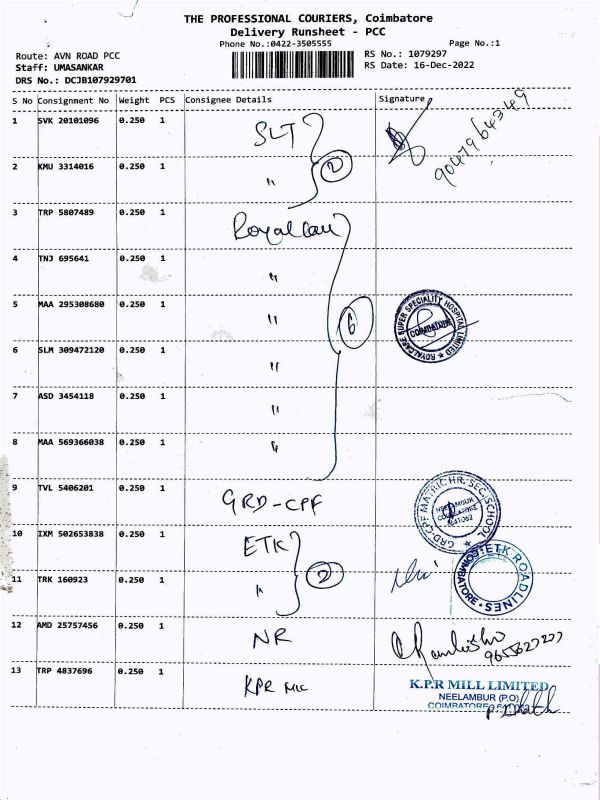 THE PROFESSIONAL COURIERS, Coimbatore
Delivery Runsheet - PCC
Phone No.:0422-3505555 Page No.:1
Route: AVN ROAD PCC RS No.: 1079297
Staff: UMASANKAR RS Date: 16-Dec-2022
DRS No.: DCJB107929701
S No Consignment No Weight PCS Consignee Details Signature
1 SVK 20101096 0.250 1 SLT 9047964349
2 KMU 3314016 0.250 1 " 2
3 TRP 5807489 0.250 1 Royal Care
4 TNJ 695641 0.250 1 "
5 MAA 295308680 0.250 1 " 6 ROYALCARE SUPER SPECIALITY HOSPITAL LIMITED COIMBATORE
6 SLM 309472120 0.250 1 "
7 ASD 3454118 0.250 1 "
8 MAA 569366038 0.250 1 "
9 TVL 5406201 0.250 1 GRD-CPF GRD-CPF MATRIC HR. SEC. SCHOOL NEELAMBUR COIMBATORE 641062
10 IXM 502653838 0.250 1 ETK
11 TRK 160923 0.250 1 " 2 ETK ROADLINES COIMBATORE
12 AMD 25757456 0.250 1 NR
13 TRP 4837696 0.250 1 KPR Mill K.P.R MILL LIMITED
NEELAMBUR (P.O)
COIMBATORE